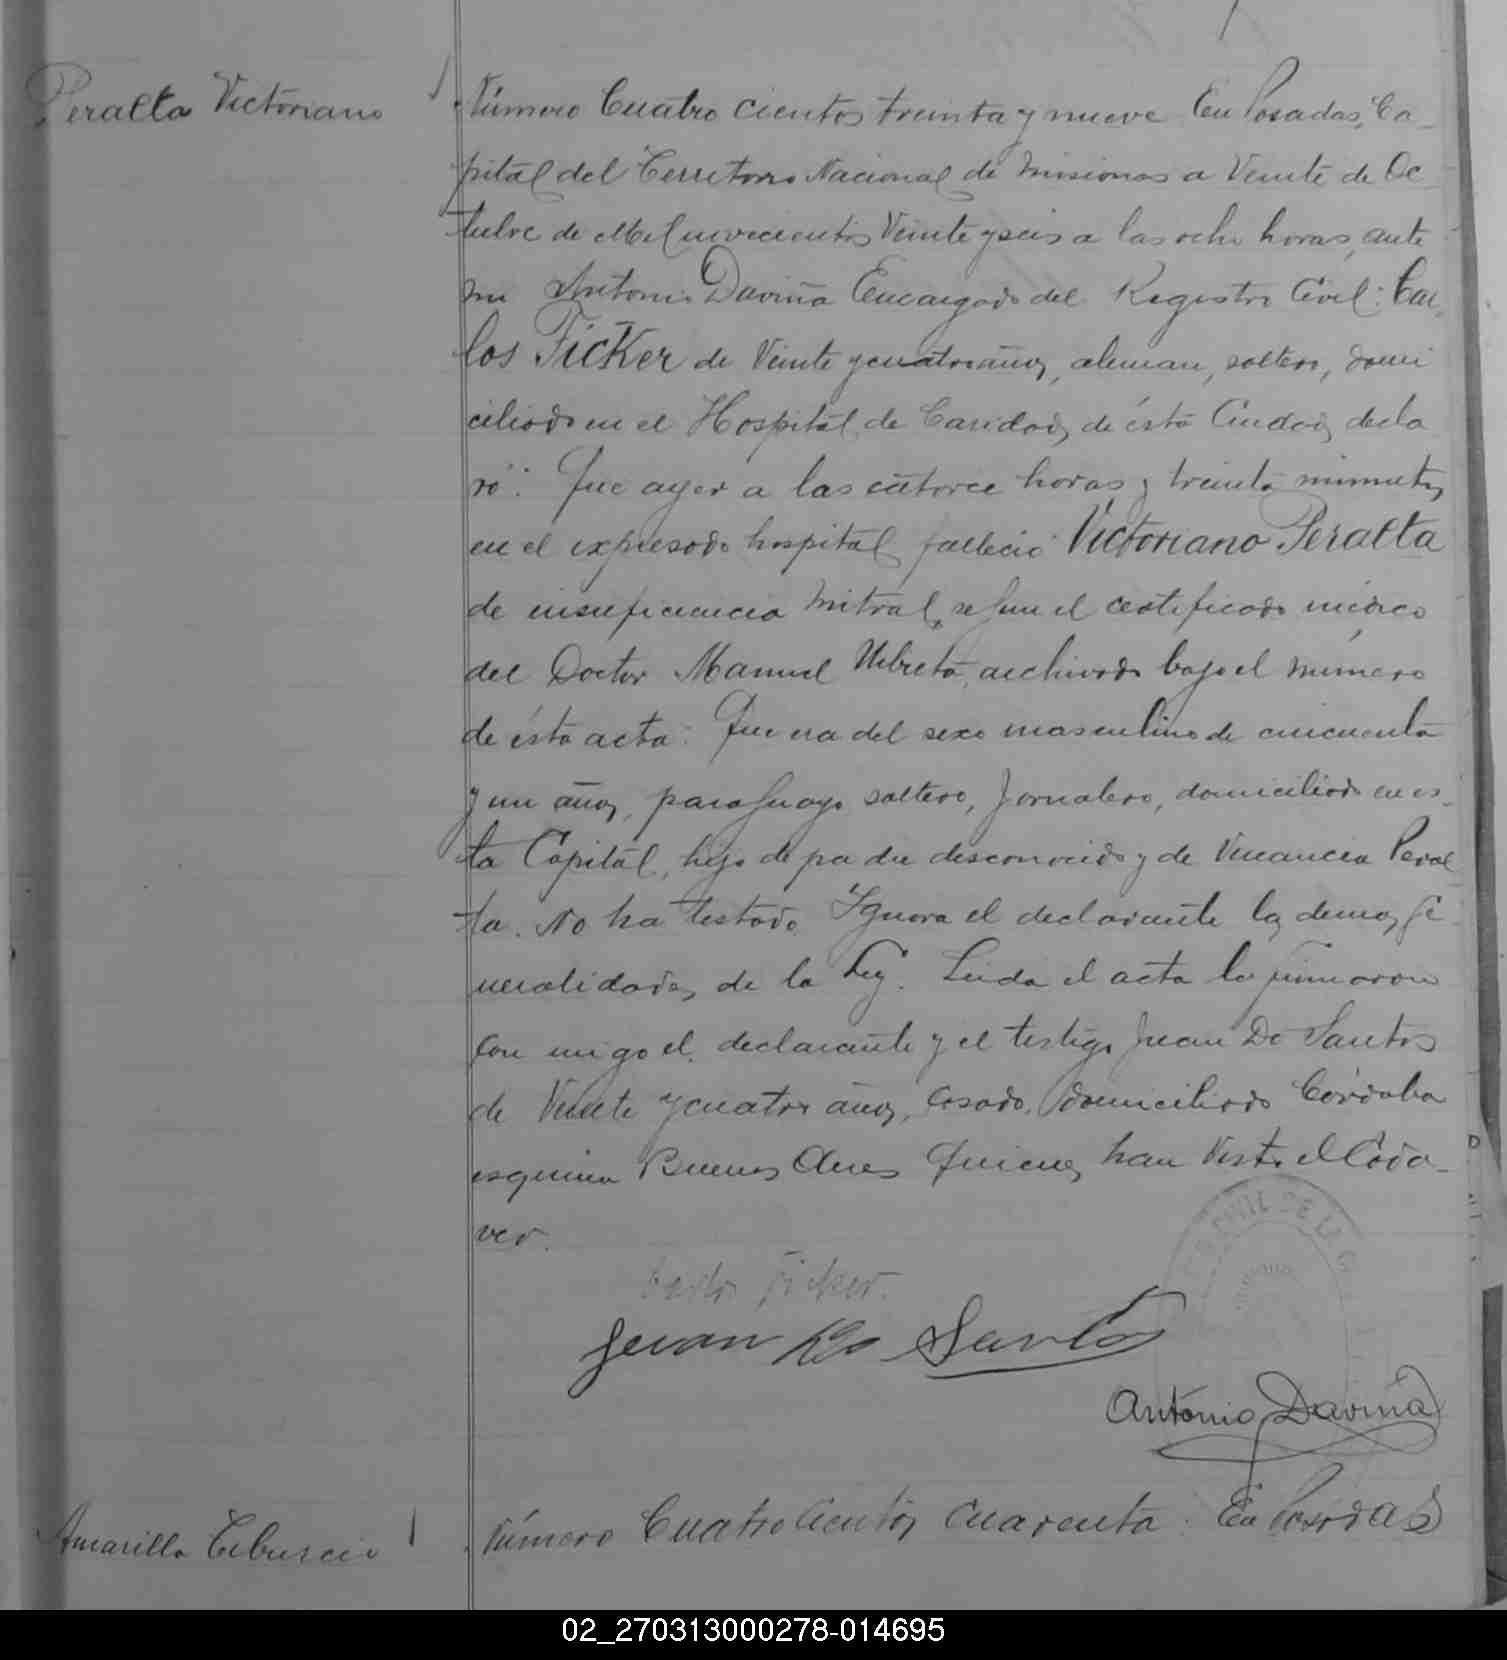 Peralta Victoriano
Número Cuatro cientos treinta y nueve En Posadas, Ca-
pital del Territorio Nacional de Misiones a Veinte de Oc
tubre de Mil novecientos Veinte y seis a las ocho horas, ante
mi Antonio Daviña Encargado del Registro Civil: Car-
los Ficker de Veinte y cuatro años, aleman, soltero, domi
ciliado en el Hospital de Caridad, de ésta Ciudad, decla
ró: Que ayer a las catorce horas y treinta minutos,
en el expresado hospital falleció Victoriano Peralta
de insuficiencia Mitral, segun el certificado médico
del Doctor Manuel archivado bajo el número
de ésta acta: Que era del sexo masculino de cincuenta
y un años, paraguayo soltero, Jornalero, domiciliado en es-
ta Capital, hijo de padre desconocido y de Venancia Peral
ta. No ha testado. Ignora el declarante las demas ge-
neralidades de la Ley. Leida el acta la firmaron
con migo el declarante y el testigo Juan Do Santos
de Veinte y cuatro años, casado, domiciliado Córdoba
esquina Buenos Aires Quienes han Visto el Cada-
ver.
Carlos Ficker.
Juan Do Santos
Antonio Daviña
Amarilla Tiburcio
Número Cuatro cientos cuarenta: En Posadas
02_270313000278-014695